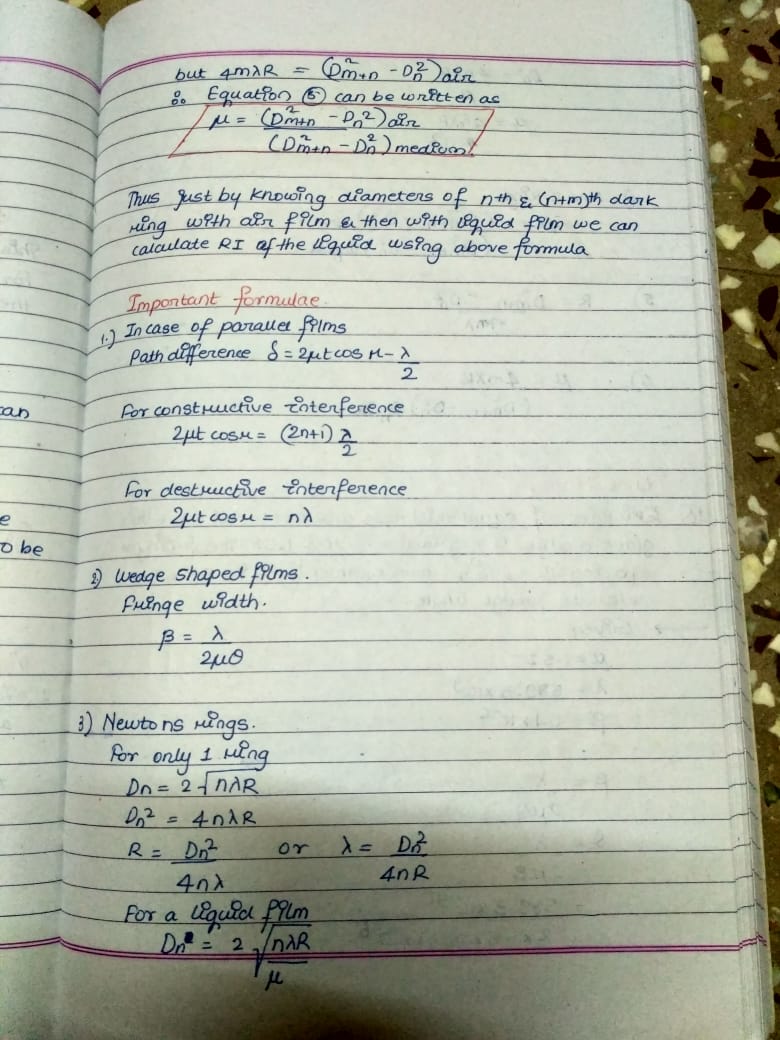 but 4mλR = (D²m+n - Dn²)air
∴ Equation ⑤ can be written as
μ = (D²m+n - Dn²)air
(D²m+n - Dn²)medium
Thus just by knowing diameters of nth & (n+m)th dark
ring with air film & then with liquid film we can
calculate RI of the liquid using above formula
Important formulae.
1.) In case of parallel films
Path difference δ = 2μt cos r - λ/2
For constructive interference
2μt cos r = (2n+1) λ/2
For destructive interference
2μt cos r = nλ
2) Wedge shaped films.
Fringe width.
β = λ/2μθ
3) Newtons rings.
For only 1 ring
Dn = 2√nλR
Dn² = 4nλR
R = Dn²/4nλ or λ = Dn²/4nR
For a liquid film
Dn = 2√nλR/μ
can
e
to be